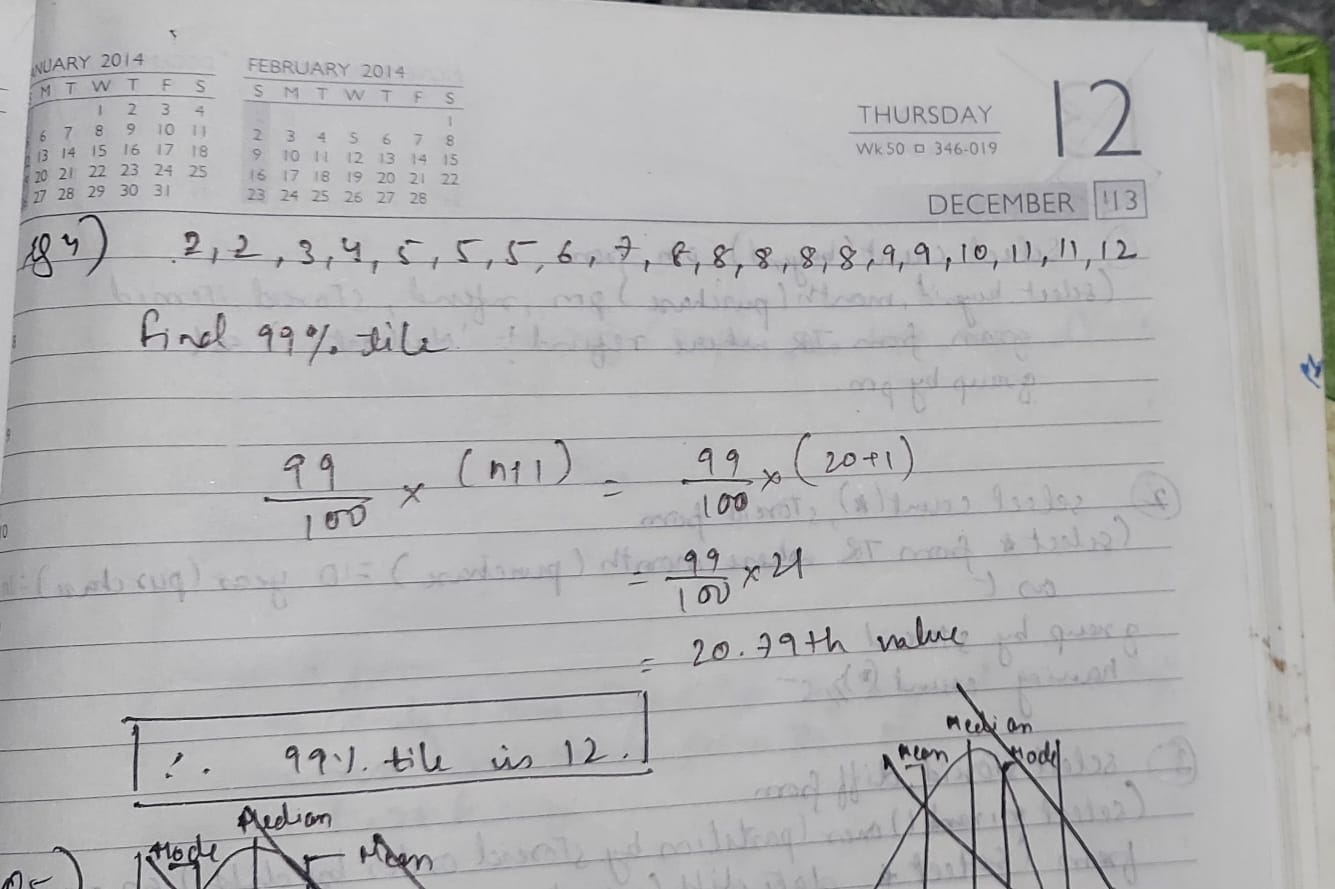 NUARY 2014
M T W T F S
1 2 3 4
6 7 8 9 10 11
13 14 15 16 17 18
20 21 22 23 24 25
27 28 29 30 31
FEBRUARY 2014
S M T W T F S
1
2 3 4 5 6 7 8
9 10 11 12 13 14 15
16 17 18 19 20 21 22
23 24 25 26 27 28
THURSDAY
Wk 50 □ 346-019
12
DECEMBER '13
2, 2, 3, 4, 5, 5, 5, 6, 7, 8, 8, 8, 8, 8, 9, 9, 10, 11, 11, 12
find 99% tile
99/100 × (n+1) = 99/100 × (20+1)
= 99/100 × 21
= 20.79th value
∴ 99% tile is 12.
Median
Mean Mode
Median
Mode Mean